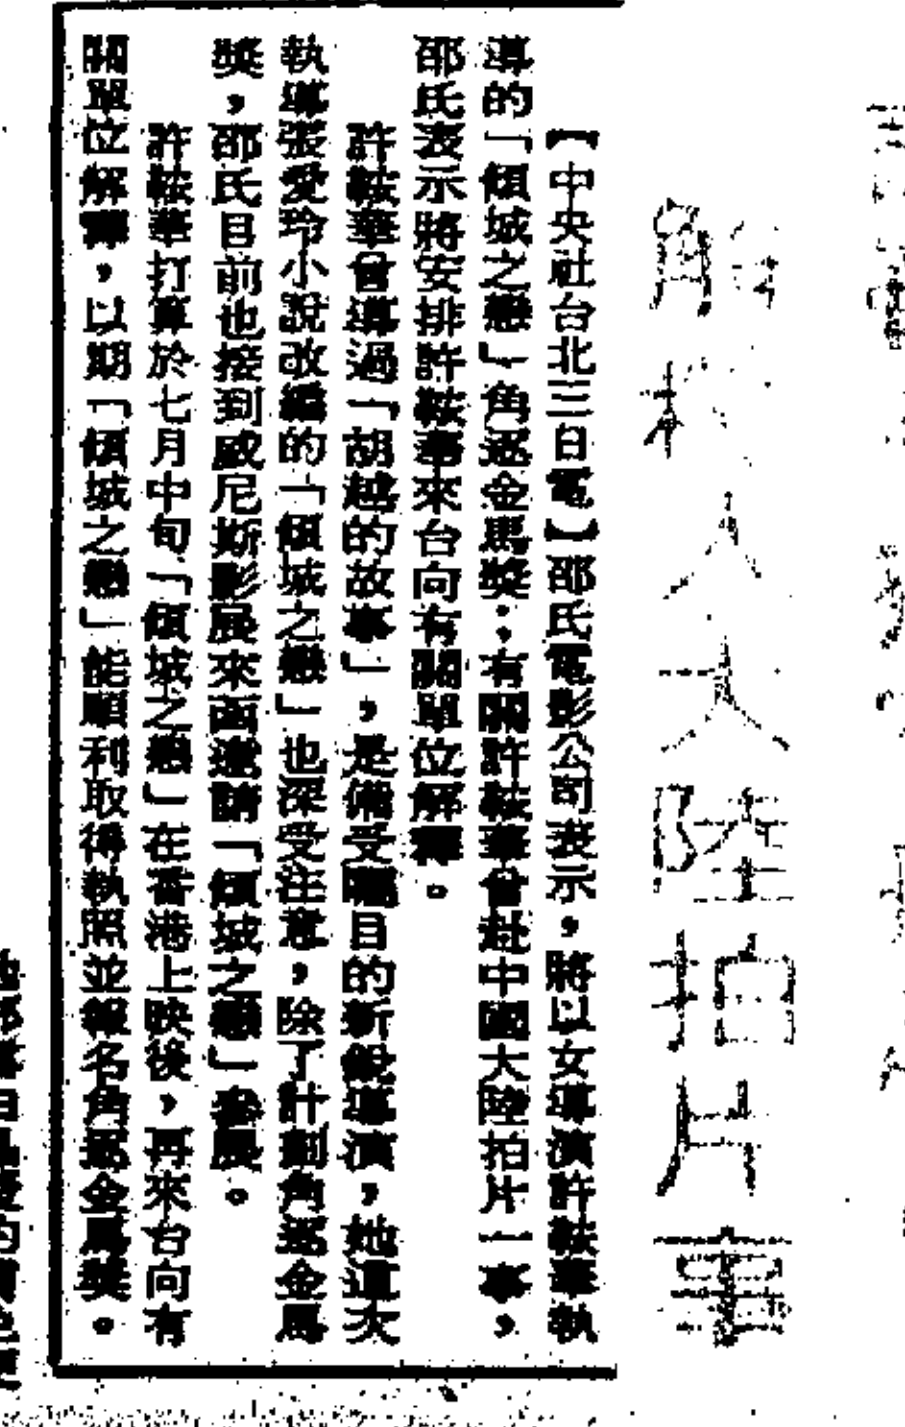 解釋入大陸拍片事
【中央社台北三日電】邵氏電影公司表示，將以女導演許鞍華執
導的「傾城之戀」角逐金馬獎；有關許鞍華曾赴中國大陸拍片一事，
邵氏表示將安排許鞍華來台向有關單位解釋。
許鞍華曾導過「胡越的故事」，是備受矚目的新銳導演，她這次
執導張愛玲小說改編的「傾城之戀」也深受注意，除了計劃角逐金馬
獎，邵氏目前也接到威尼斯影展來函邀請「傾城之戀」參展。
許鞍華打算於七月中旬「傾城之戀」在香港上映後，再來台向有
關單位解釋，以期「傾城之戀」能順利取得執照並報名角逐金馬獎。